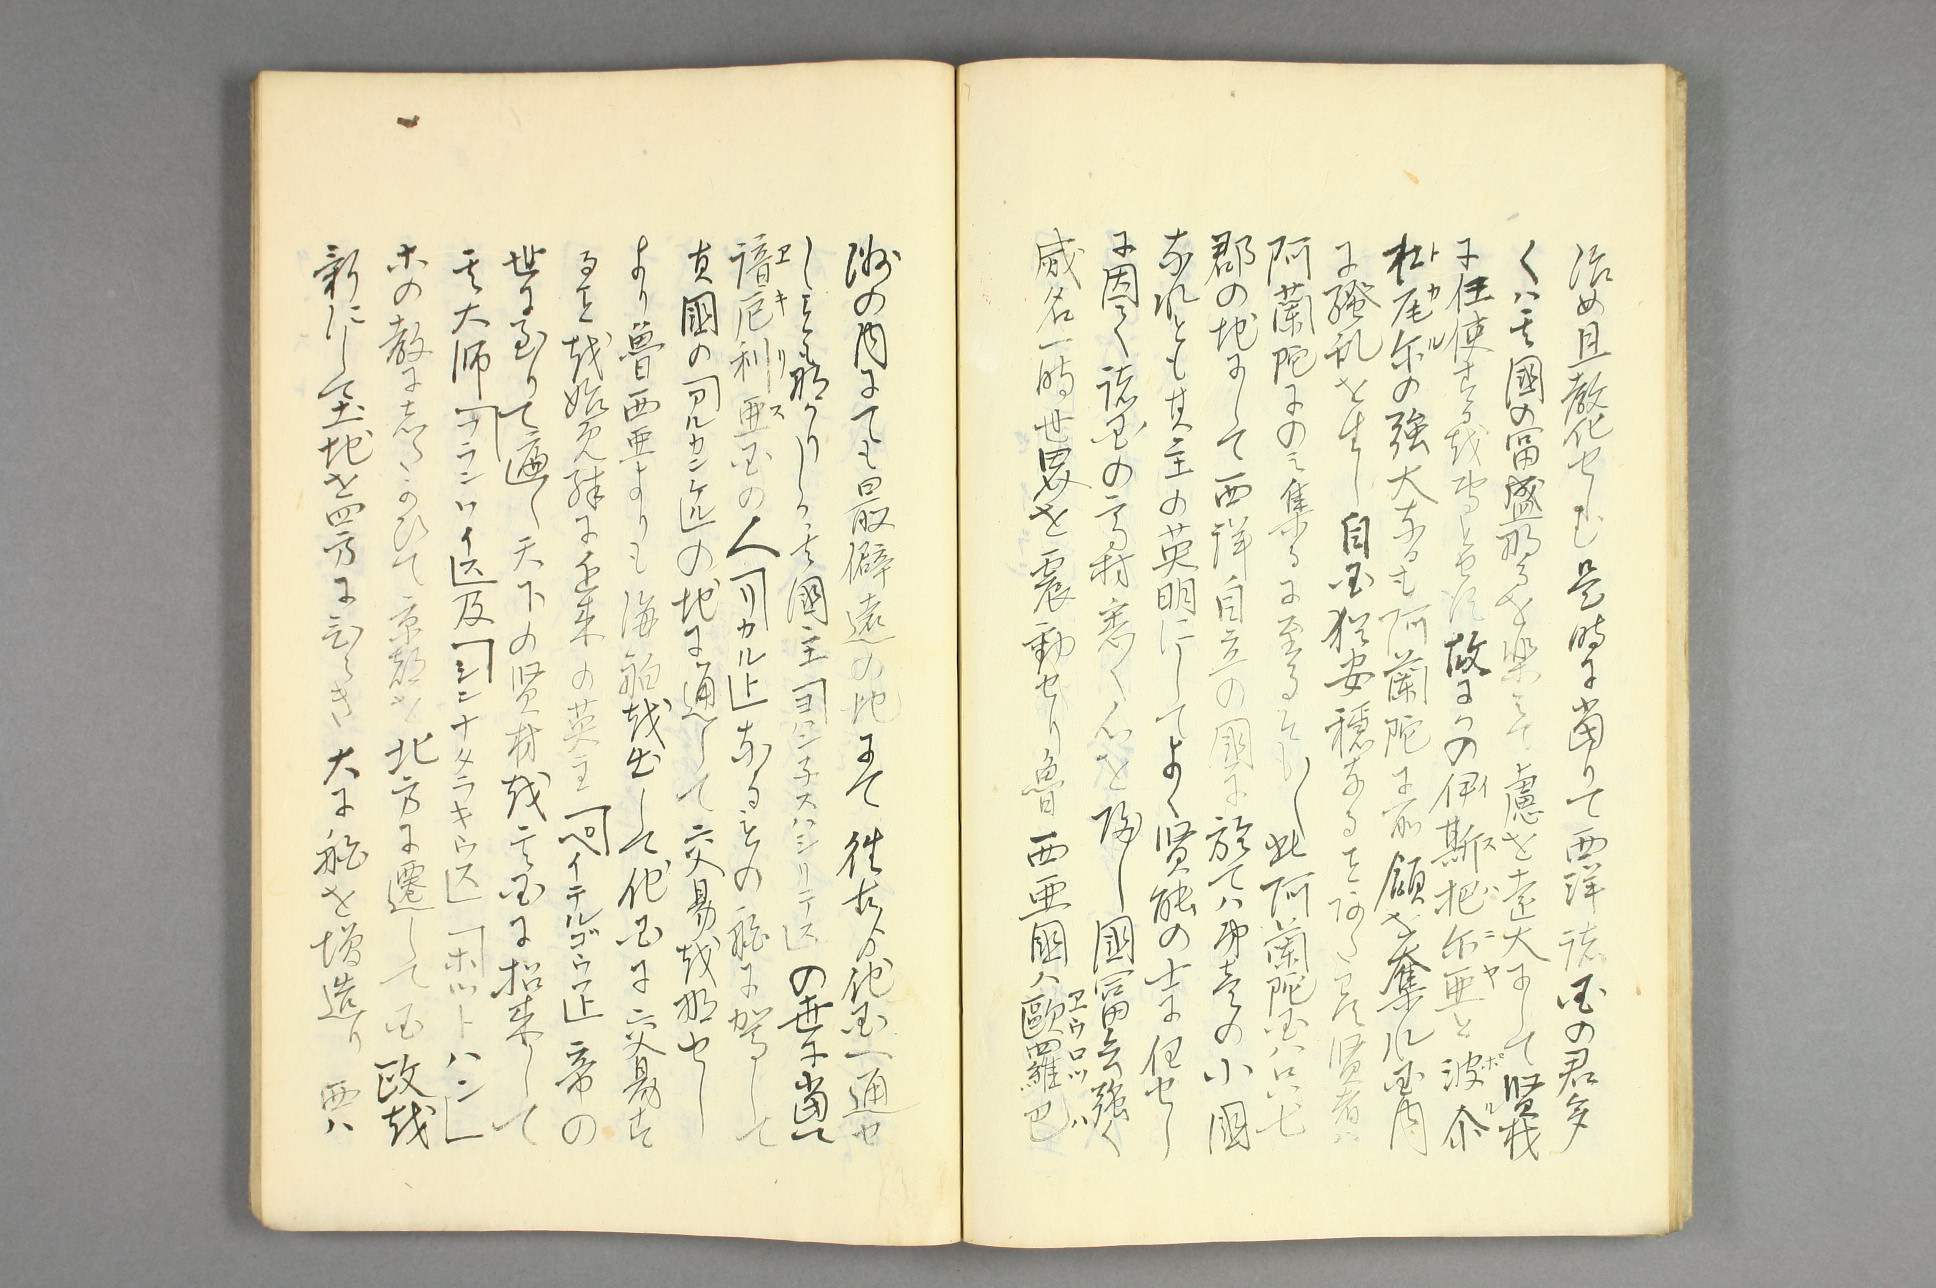 治め且教化せむ是時に當りて西洋諸国の君多
くハ其國の富盛なるを楽ミて慮を遠大にして賢材
に任使する越が故にかの伊斯把尓亜と波尓
杜尾尓の強大なるも阿蘭陀に所領を奪れ国内
に騒乱を生し自国猶安穏なるを賢者ハ
阿蘭陀にのミ集るに至る此阿蘭陀国ハ七
郡の地にして西洋自立の國に於てハ小國
なれとも其主の英明にしてよく賢能の士に任せし
に因て諸国の高材悉く心を帰し國富兵強く
威名一時世界を震動せり魯西亜國ハ歐羅巴
洲の内にても最僻遠の地にて往古ハ他国へ通せ
し事も那かりしか其國主「ヨハン子スハシリテス」の世に當て
諳厄利亜国の人「リカルト」なるもの舩に駕して
其國の「アルカンケル」の地に通して交易越那せし
より魯西亜よりも海舶越出して他国に交易す
る事越始允殊に近来の英主「ペイテルゴウト」帝の
世に至りて遍く天下の賢材越其国に招来して
其大師「フランツイス」及「シンナタラキウス」「ホットハン」
等の教にしたかひて京都を北方に遷して国政越
新にして土地を四方にひらき大に舩を増造り西ハ